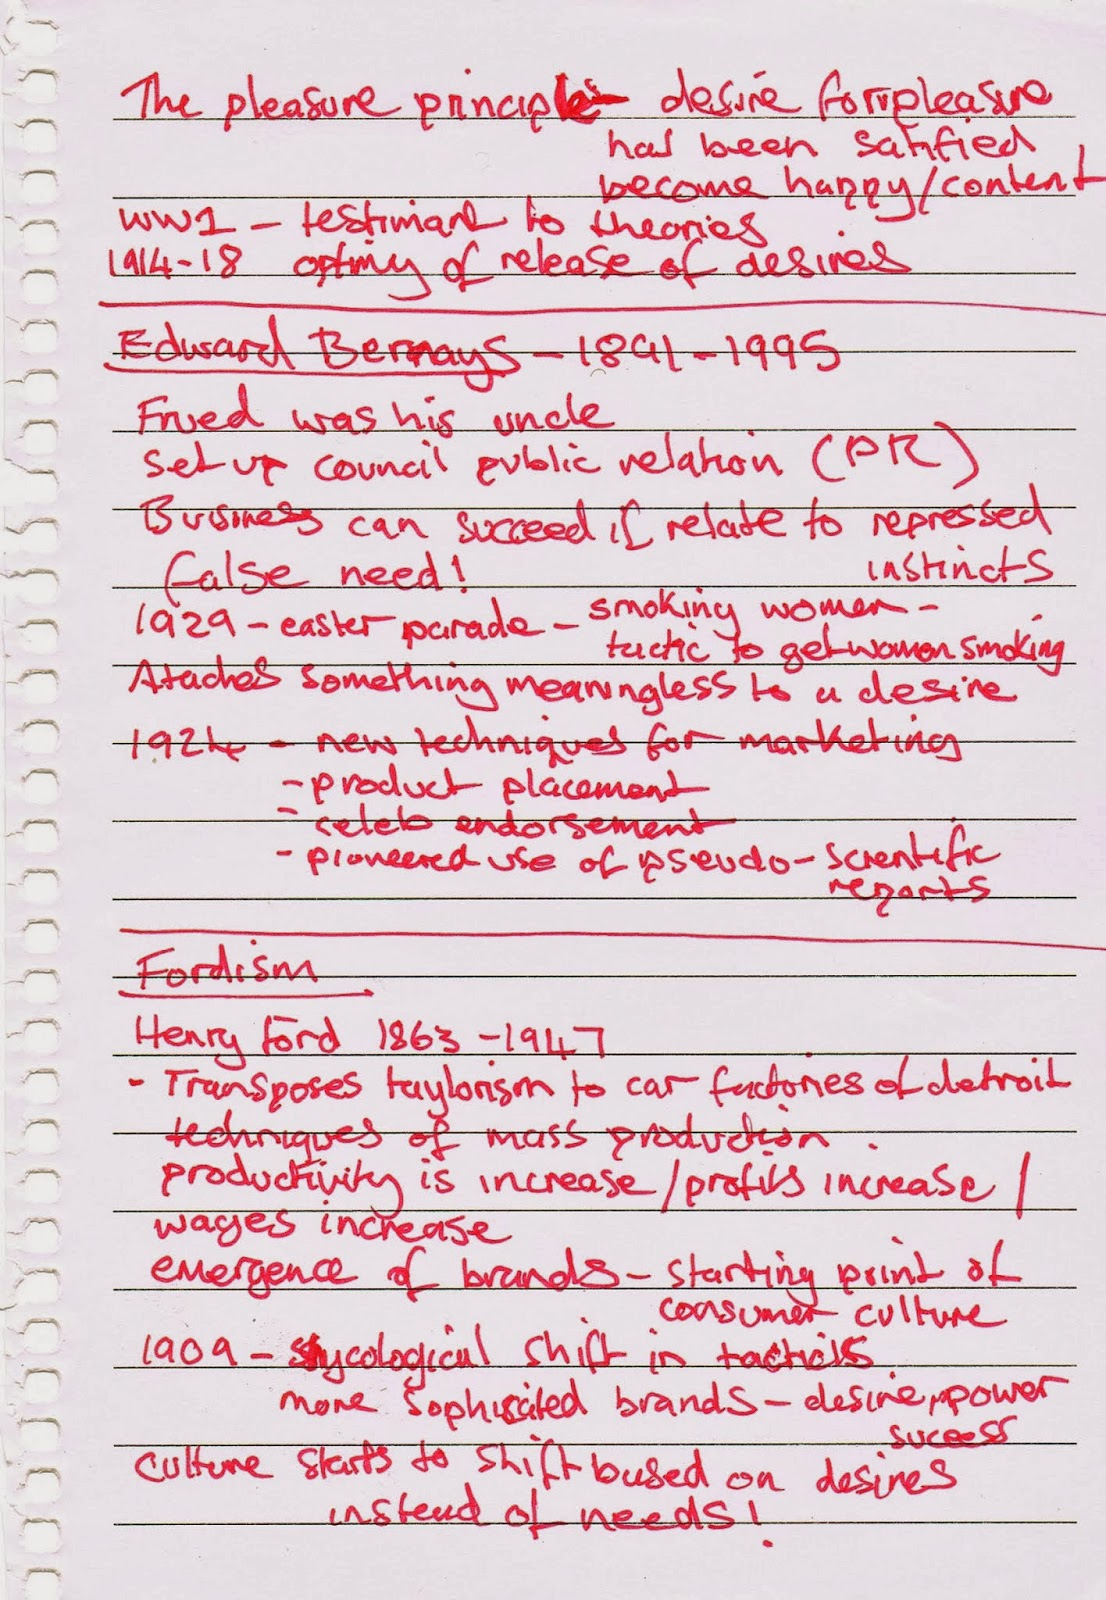 The pleasure principle - desire for pleasure
has been satified
become happy/content
WW1 - testimant to theories
1914-18 optimy of release of desires
Edward Bernays - 1891-1995
Frued was his uncle
Set up council public relation (PR)
Business can succeed if relate to repressed
instincts
false need!
1929 - easter parade - smoking women -
tactic to get women smoking
Ataches something meaningless to a desire
1924 - new techniques for marketing
- product placement
- celeb endorsement
- pioneered use of pseudo-scientific
reports
Fordism
Henry Ford 1863-1947
- Transposes taylorism to car factories of detroit
techniques of mass production.
productivity is increase/profits increase/
wages increase
emergence of brands - starting point of
consumer culture
1909 - shift in
more brands - desire, power
sucess
Culture starts to shift based on desires
instead of needs!